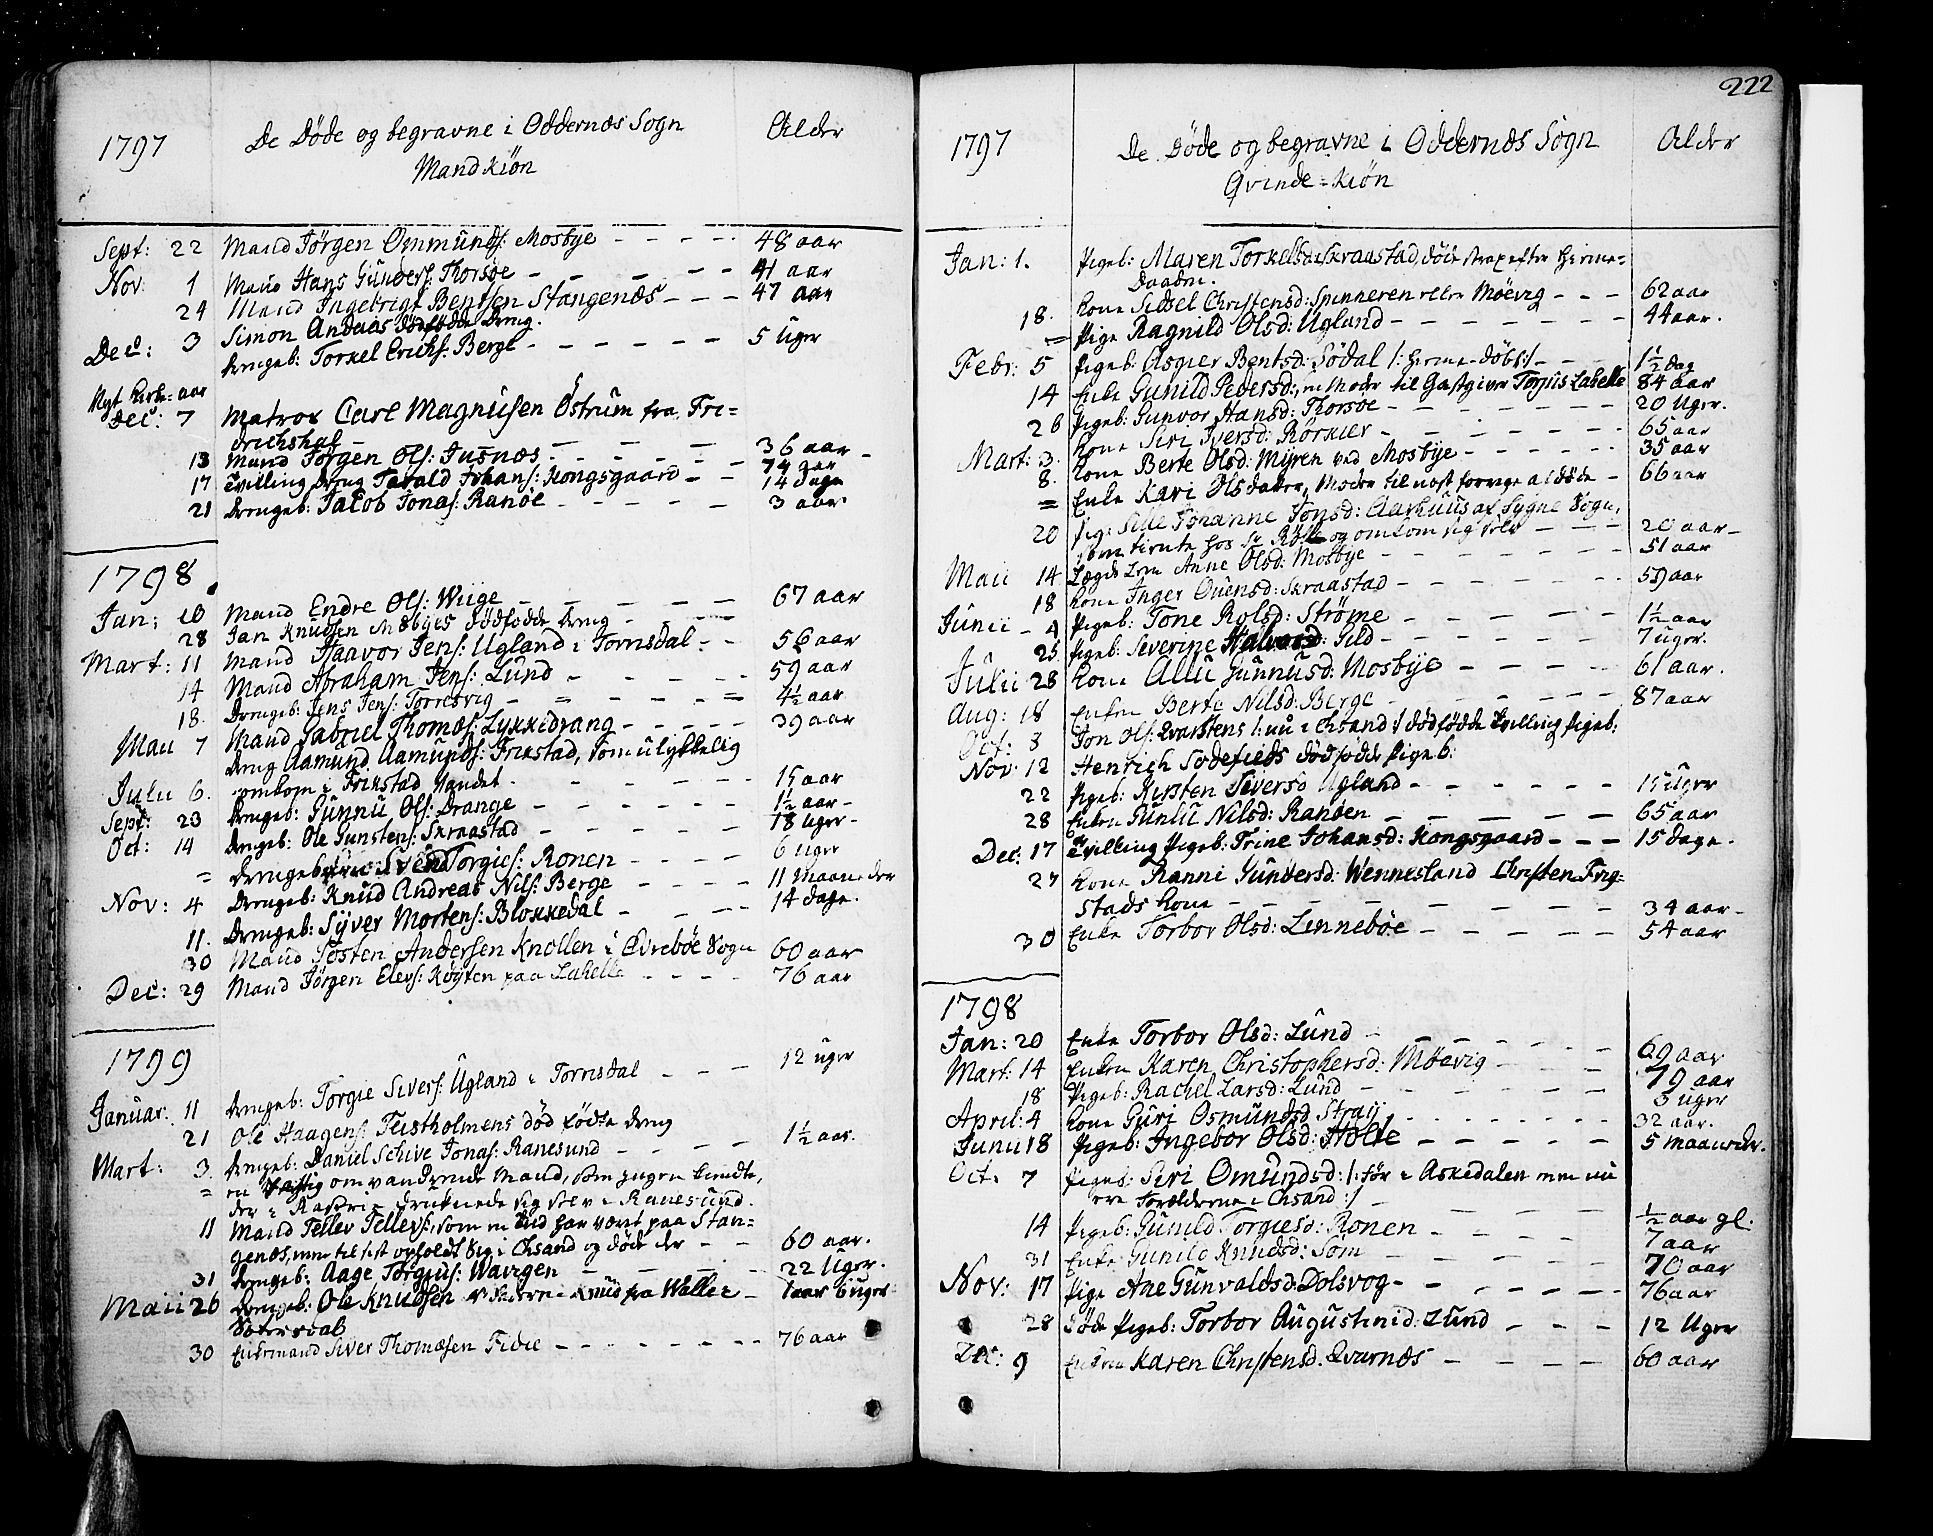 1797
De Døde og begravne i Oddernæs Sogn
Mandkiøn
Alder
Sept: 22 Mand Jørgen Ommunds: Mosbye - - - - 48 aar
Nov: 1 Mand Hans Gunders: Thorsøe - - - - 41 aar
24 Mand Ingebrigt Bentsen Stangenæs - - - 47 aar
Dec: 3 Simon Andaas dødfødde dreng.
drengeb: Torkel Erichs: Berge - - - - 5 Uger
Nyt Kirke-aar
Dec: 7 Matros Carl Magnusen Østrum fra Fre=
drichshal - - - - 36 aar
13 Mand Jørgen Ols: Jusnæs - - - - 74 aar
17 Tvilling dreng Tarald Johans: Kongsgaard - - 14 dage
21 drengeb: Jacob Jonas: Ranøe - - - - 3 aar
1798.
Jan: 10 Mand Endre Ols: Wiige - - - - 67 aar
28 Jan Knudsen Mosbyes dødfødde dreng - - -
Mart: 11 Mand Haavor Jens: Ugland i Tornsdal - - 56 aar
14 Mand Abraham Jens: Lund - - - - 59 aar
18. drengeb: Jens Jens: Torresvig - - - - 4½ aar
Maii 7 Mand Gabriel Thomæs: Lykkedrang - - - - 39 aar
dreng Aamund Aamunds: Frikstad, som ulykkelig
Julii 6. omkom i Frikstad Vandet - - - - 15 aar
Sept: 23 drengeb: Gunnu Ols: Drange - - - - 1½ aar
Oct: 14 drengeb: Ole Gunstens: Skraastad - - - - 18 Uger
= drengeb: Svend Torgies: Ronen - - - - 6 Uger
Nov: 4 drengeb: Knud Andreas Nils: Berge - - - 11 Maaneder
11. drengeb: Syver Mortens: Blokkedal - - - - 14 dage.
30 Mand Tosten Andersen Knollen i Øvrebøe Sogn 60 aar
Dec: 29 Mand Jørgen Elevs: Køyten paa Lahelle - - - - 76 aar
1799
Januar: 11 drengeb: Torgie Sivers: Ugland i Tornsdal - - - 12 uger
21 Ole Haagens: Teistholmens død fødte dreng
Mart: 3. drengeb: Daniel Schive Jonas: Ranesund - - - - 1½ aar.
= en omvandrende Mand, som ingen kiendte,
der i druknede sig selv i Ranesund.
11 Mand Tellev Tellevs:, som en tid har været paa Stan=
genæs, men til sist opholdt sig i Chsand og døde der - - 60 aar.
31 drengeb: Aage Torgeus: Waregen - - - - 22 Uger.
Maii 26 drengeb: Ole Knudsen fra Walle i - 1 aar 6 uger
Sætersdal
30 Enkemand Siver Thomæsen Fidie - - - - 76 aar
222
1797
De Døde og begravne i Oddernæs Sogn
Qvinde=kiøn
Alder
Jan: 1. Pigeb: Maren Torkelsd: Skraastad, døde strax efter hieme=
daaben.
18. Kone Sidsel Christensd: Spinneren eller Møevig - - - 62 aar
= Pige Ragnild Olsd: Ugland - - - - 44 aar.
Febr: 5 Pigeb: Asgier Bentsd: Sødal /: hieme-døbt :/ - - - 1½ dag
14 Enke Gunild Pedersd:, en Moder til Gastgiver Torjus Lahelle 84 aar
26 Pigeb: Gunvor Hansd: Thorsøe - - - - 20 Uger.
Mart: 3. Kone Siri Iversd: Rørkier - - - - 65 aar
8. Kone Berte Olsd: Myren ved Mosbye - - - - 35 aar
= Enke Kari Olsdatter, Moder til næst forrige afdøde - 66 aar
20 Pige Sille Johanne Jonsd: Aarhuus af Sygne Sogn,
som tiente hos og omkom sig selv - - - 20 aar
Maii 14 Lægds Lem Anne Olsd: Mosbye - - - - 51 aar
18 Kone Inger Ouensd: Skraastad - - - - 59 aar
Junii - 4 Pigeb: Tone Rolsd: Strøme - - - - 1½ aar
25 Pigeb: Severine Halvord: Gild - - - - 7 uger.
Julii 28 Kone Allu Gunnusd: Mosbye - - - - 61 aar.
Aug: 18 Enken Berte Nilsd: Berge - - - - 87 aar
Oct: 3 Jon Ols: Qvarstens /: nu i Chsand :/ dødfødde tvilling Pigeb:
Nov: 12 Henrich Sodefieds dødfødde Pigeb:
22 Pigeb: Kirsten Siversd Ugland - - - - 15 Uger
28 Enken Gunlu Nilsd: Ranøen - - - - 65 aar
Dec: 17 Tvilling Pigeb: Trine Johansd: Kongsgaard - - - 15 dage.
27 Kone Ranni Gundersd: Wennesland Christen Frig=
stads Kone - - - - 34 aar
30 Enke Torbor Olsd: Lennebøe - - - - 54 aar
1798
Jan: 20 Enke Torbor Olsd: Lund - - - - 69 aar
Mart: 14 Enken Karen Christophersd: Møevig - - - - 79 aar
18 Pigeb: Rachel Larsd: Lund - - - - 3 uger
April: 4 Kone Guri Osmundsd Straij - - - - 32 aar.
Junii 18 Pigeb: Ingebor Olsd: Holte - - - - 5 maaneder.
Oct: 7 Pigeb: Siri Omundsd: /: før i Askedalen men nu
ere Forældrene i Chsand :/ ½ aar gl.
14 Pigeb: Gunild Torgiesd: Ronen - - - - 7 aar
31 Enke Gunild Knudsd: Som - - - - 70 aar
Nov: 17 Pige Ane Gunvaldsd: Dolsvog - - - - 76 aar
28 døde Pigeb: Torbor Augustinid: Lund - - - 12 Uger
Dec: 9 Enken Karen Christensd: Qvarnæs - - - - 60 aar